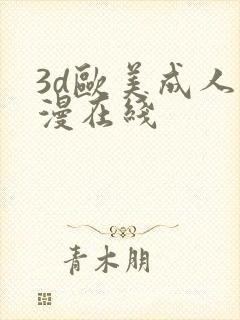 3d歐美成人
漫在綫
青木朋